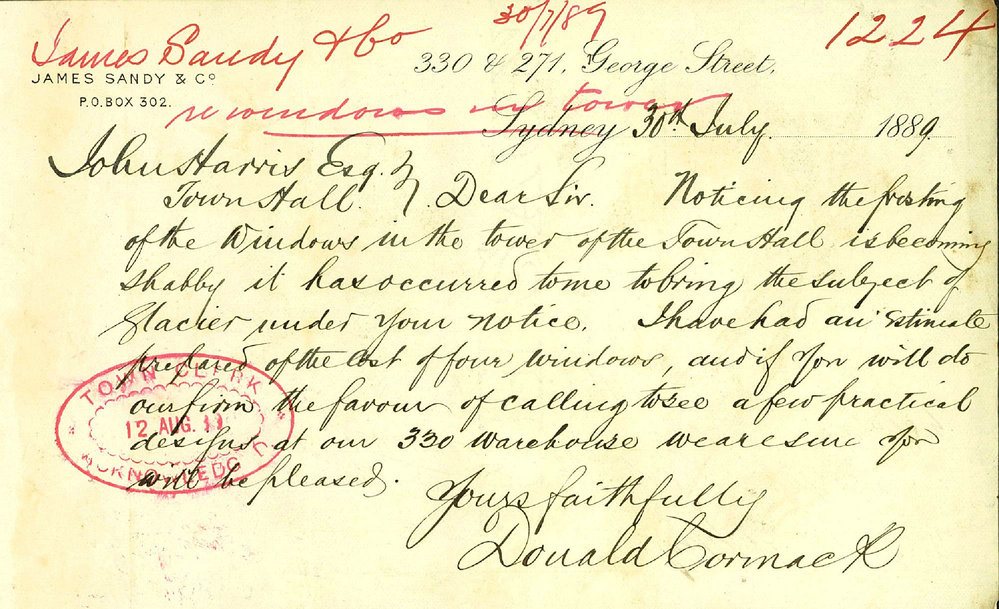 30/7/89
1224
James Sandy & Co
JAMES SANDY & Co
330 & 271, George Street,
P.O. BOX 302.
re windows in tower
Sydney 30th July 1889
John Harris Esq.
Town Hall. Dear Sir. Noticing the frosting
of the Windows in the tower of the Town Hall is becoming
shabby it has occurred to me to bring the subject of
Glacier under your notice. I have had an estimate
prepared of the cost of four windows and if you will do
our firm the favour of calling to see a few practical
designs at our 330 warehouse we are sure you
will be pleased.
Yours faithfully
Donald Cormack
TOWN CLERK
12 AUG.
ACKNOWLEDGED